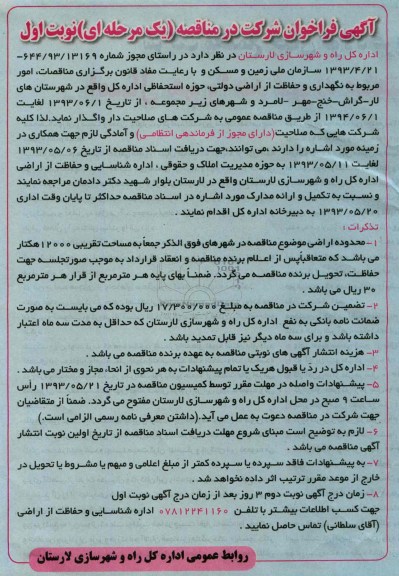 آگهی فراخوان شرکت در مناقصه (یک مرحله ای)نوبت اول
اداره کل راه و شهرسازی لارستان در نظر دارد در راستای مجوز شماره ۶۴۴/۹۳/۱۳۱۶۹-
۱۳۹۳/۴/۲۱ سازمان ملی زمین و مسکن و با رعایت مفاد قانون برگزاری مناقصات، امور
مربوط به نگهداری و حفاظت از اراضی دولتی، حوزه استحفاظی اداره کل واقع در شهرستان های
لار-گراش-خنج-مهر -لامرد و شهرهای زیر مجموعه ، از تاریخ ۱۳۹۳/۰۶/۱ لغایت
۱۳۹۴/۰۶/۱ از طریق مناقصه عمومی به شرکت های صلاحیت دار واگذار نماید.لذا کلیه
شرکت هایی که صلاحیت(دارای مجوز از فرماندهی انتظامی) و آمادگی لازم جهت همکاری در
زمینه مورد اشاره را دارند ،می توانند،جهت دریافت اسناد مناقصه از تاریخ ۱۳۹۳/۰۵/۰۶
لغایت ۱۳۹۳/۰۵/۱۱ به حوزه مدیریت املاک و حقوقی ، اداره شناسایی و حفاظت از اراضی
اداره کل راه و شهرسازی لارستان واقع در لارستان بلوار شهید دکتر دادمان مراجعه نمایند
و نسبت به تکمیل و ارائه مدارک مورد اشاره در اسناد مناقصه حداکثر تا پایان وقت اداری
۱۳۹۳/۰۵/۲۰ به دبیرخانه اداره کل اقدام نمایند .
تذکرات :
۱-محدوده اراضی موضوع مناقصه در شهرهای فوق الذکر جمعاً به مساحت تقریبی ۱۲۰۰۰هکتار
می باشد که متعاقباًپس از اعلام برنده مناقصه و انعقاد قرارداد به موجب صورتجلسه جهت
حفاظت، تحویل برنده مناقصه می گردد. ضمناً بهای پایه هر مترمربع از قرار هر مترمربع
۳۰ ریال می باشد .
۲- تضمین شرکت در مناقصه به مبلغ ۱۷/۳۰۰/۰۰۰ ریال بوده که می بایست به صورت
ضمانت نامه بانکی به نفع اداره کل راه و شهرسازی لارستان که حداقل به مدت سه ماه اعتبار
داشته باشد و برای سه ماه دیگر نیز قابل تمدید باشد .
۳- هزینه انتشار آگهی های نوبتی مناقصه به عهده برنده مناقصه می باشد .
۴- اداره کل در ردّ یا قبول هریک یا تمام پیشنهادات به هر نحوی از انحاء، مجاز و مختار می باشد .
۵- پیشنهادات واصله در مهلت مقرر توسط کمیسیون مناقصه در تاریخ ۱۳۹۳/۰۵/۲۱ رأس
ساعت ۹ صبح در محل اداره کل راه و شهرسازی لارستان مفتوح می گردد. ضمناً از متقاضیان
جهت شرکت در مناقصه دعوت به عمل می آید.(داشتن معرفی نامه رسمی الزامی است.)
۶- لازم به توضیح است مبنای شروع مهلت دریافت اسناد مناقصه از تاریخ اولین نوبت انتشار
آگهی مناقصه می باشد .
۷- به پیشنهادات فاقد سپرده یا سپرده کمتر از مبلغ اعلامی و مبهم یا مشروط یا تحویل در
خارج از موعد مقرر ترتیب اثر داده نخواهد شد .
۸- زمان درج آگهی نوبت دوم ۳ روز بعد از زمان درج آگهی نوبت اول
جهت کسب اطلاعات بیشتر با تلفن ۰۷۸۱۲۲۴۱۱۶۰ اداره شناسایی و حفاظت از اراضی
(آقای سلطانی) تماس حاصل نمایید .
روابط عمومی اداره کل راه و شهرسازی لارستان